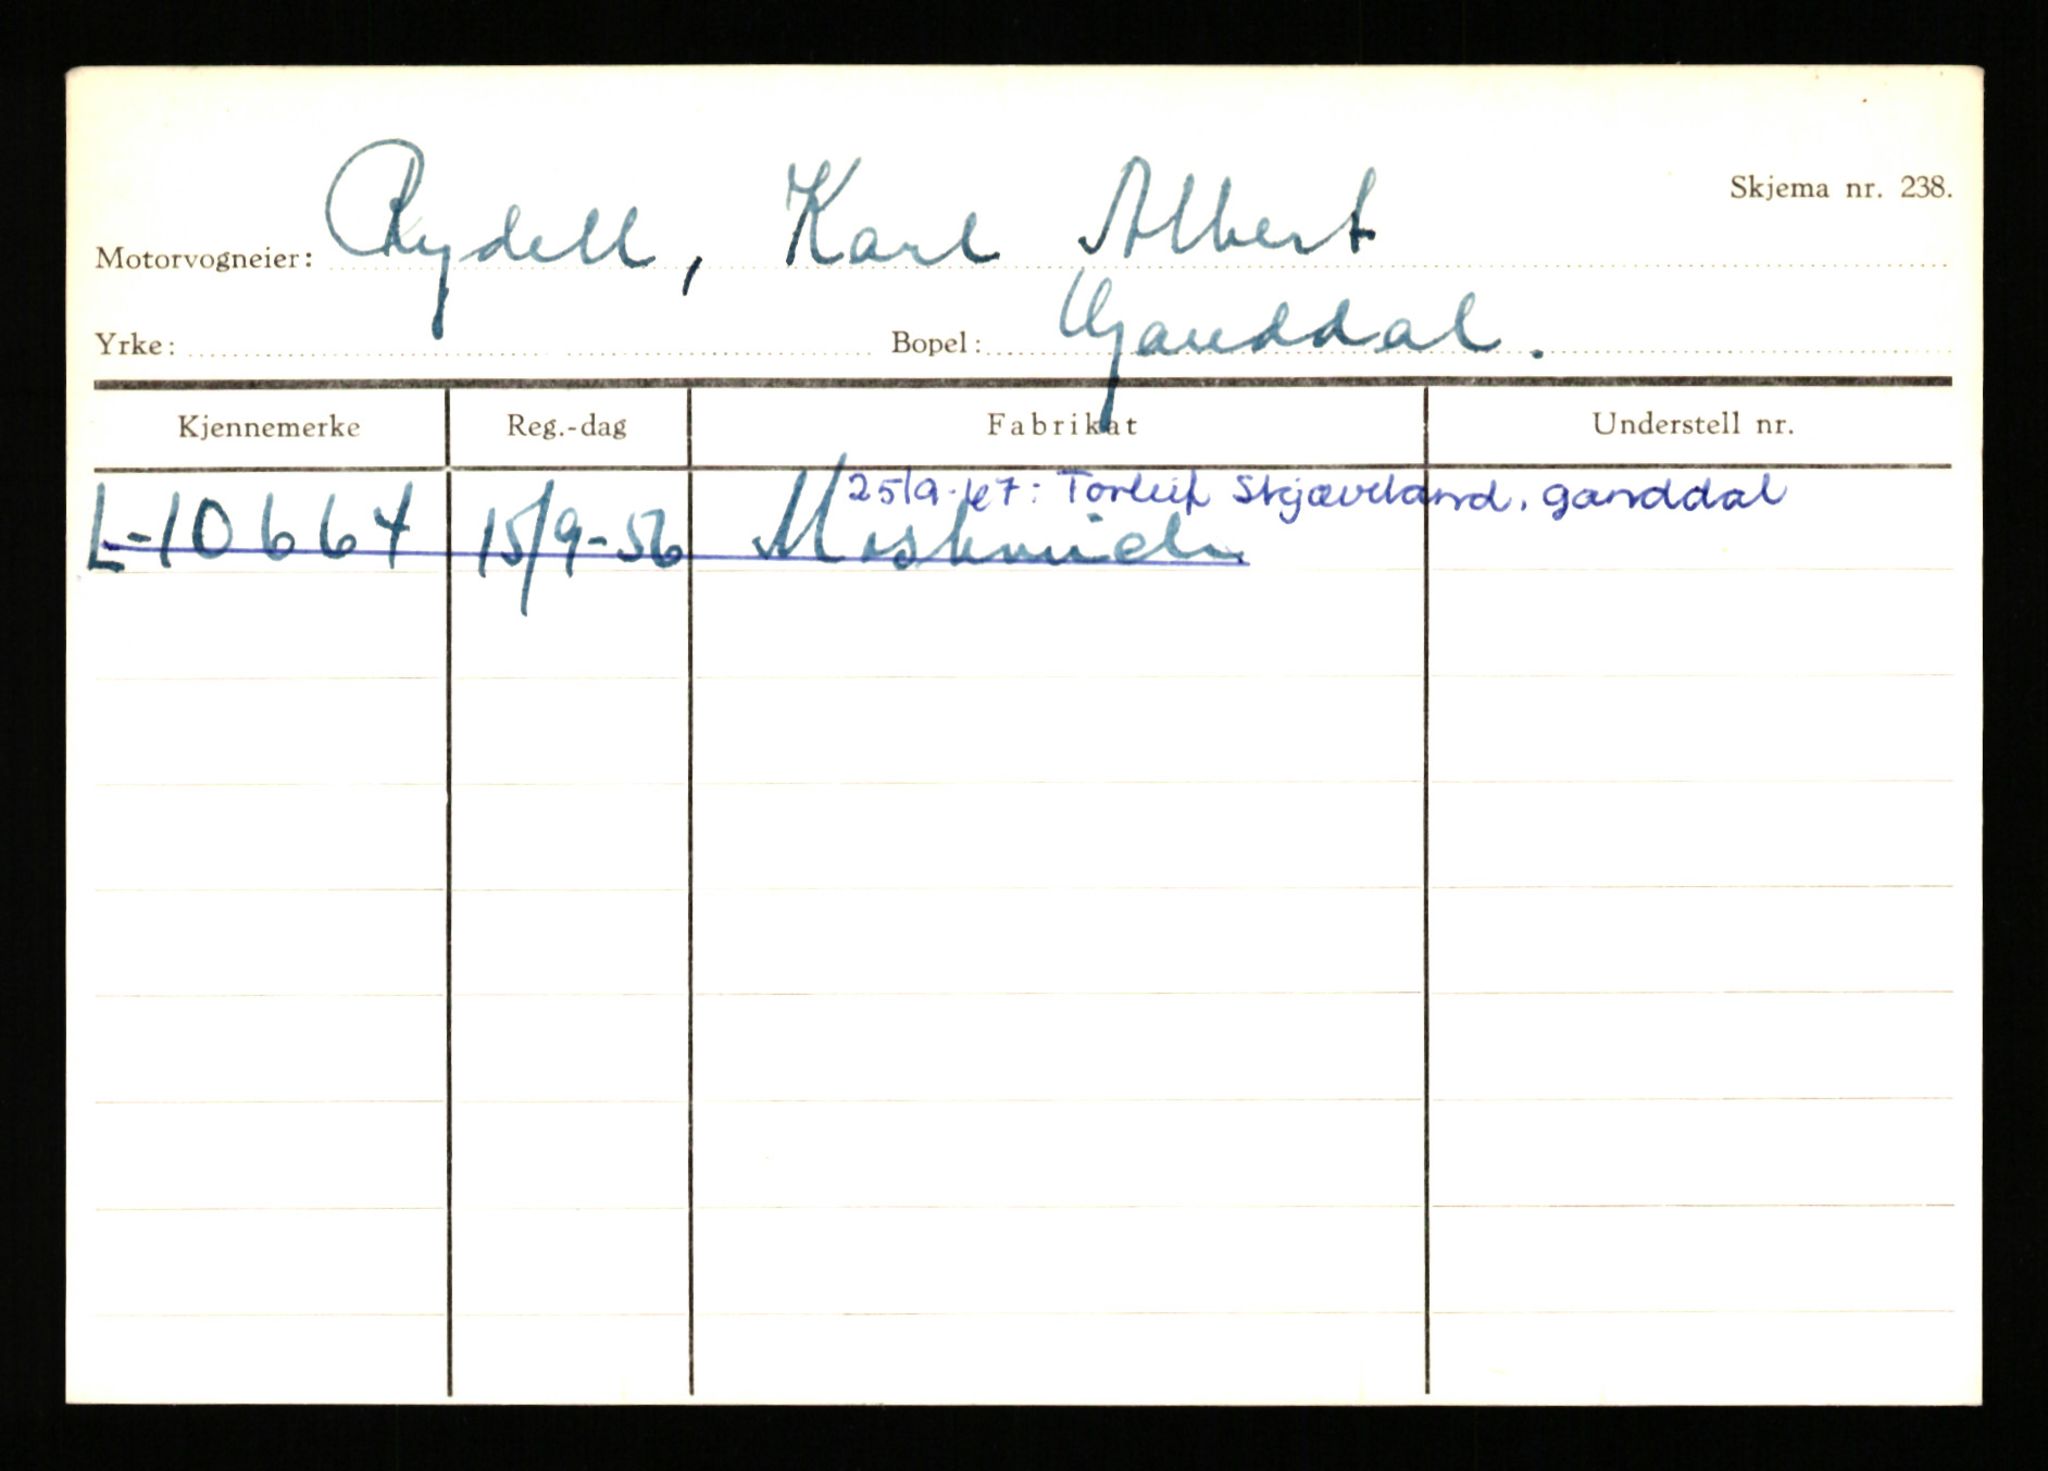 Skjema nr. 238.
Motorvogneier: Rydell, Karl Albert
Yrke: Bopel: Ganddal.
Kjennemerke Reg.-dag Fabrikat Understell nr.
25/9-67: Torleif Skjæveland, ganddal
L-10664 15/9-56 Moskvich